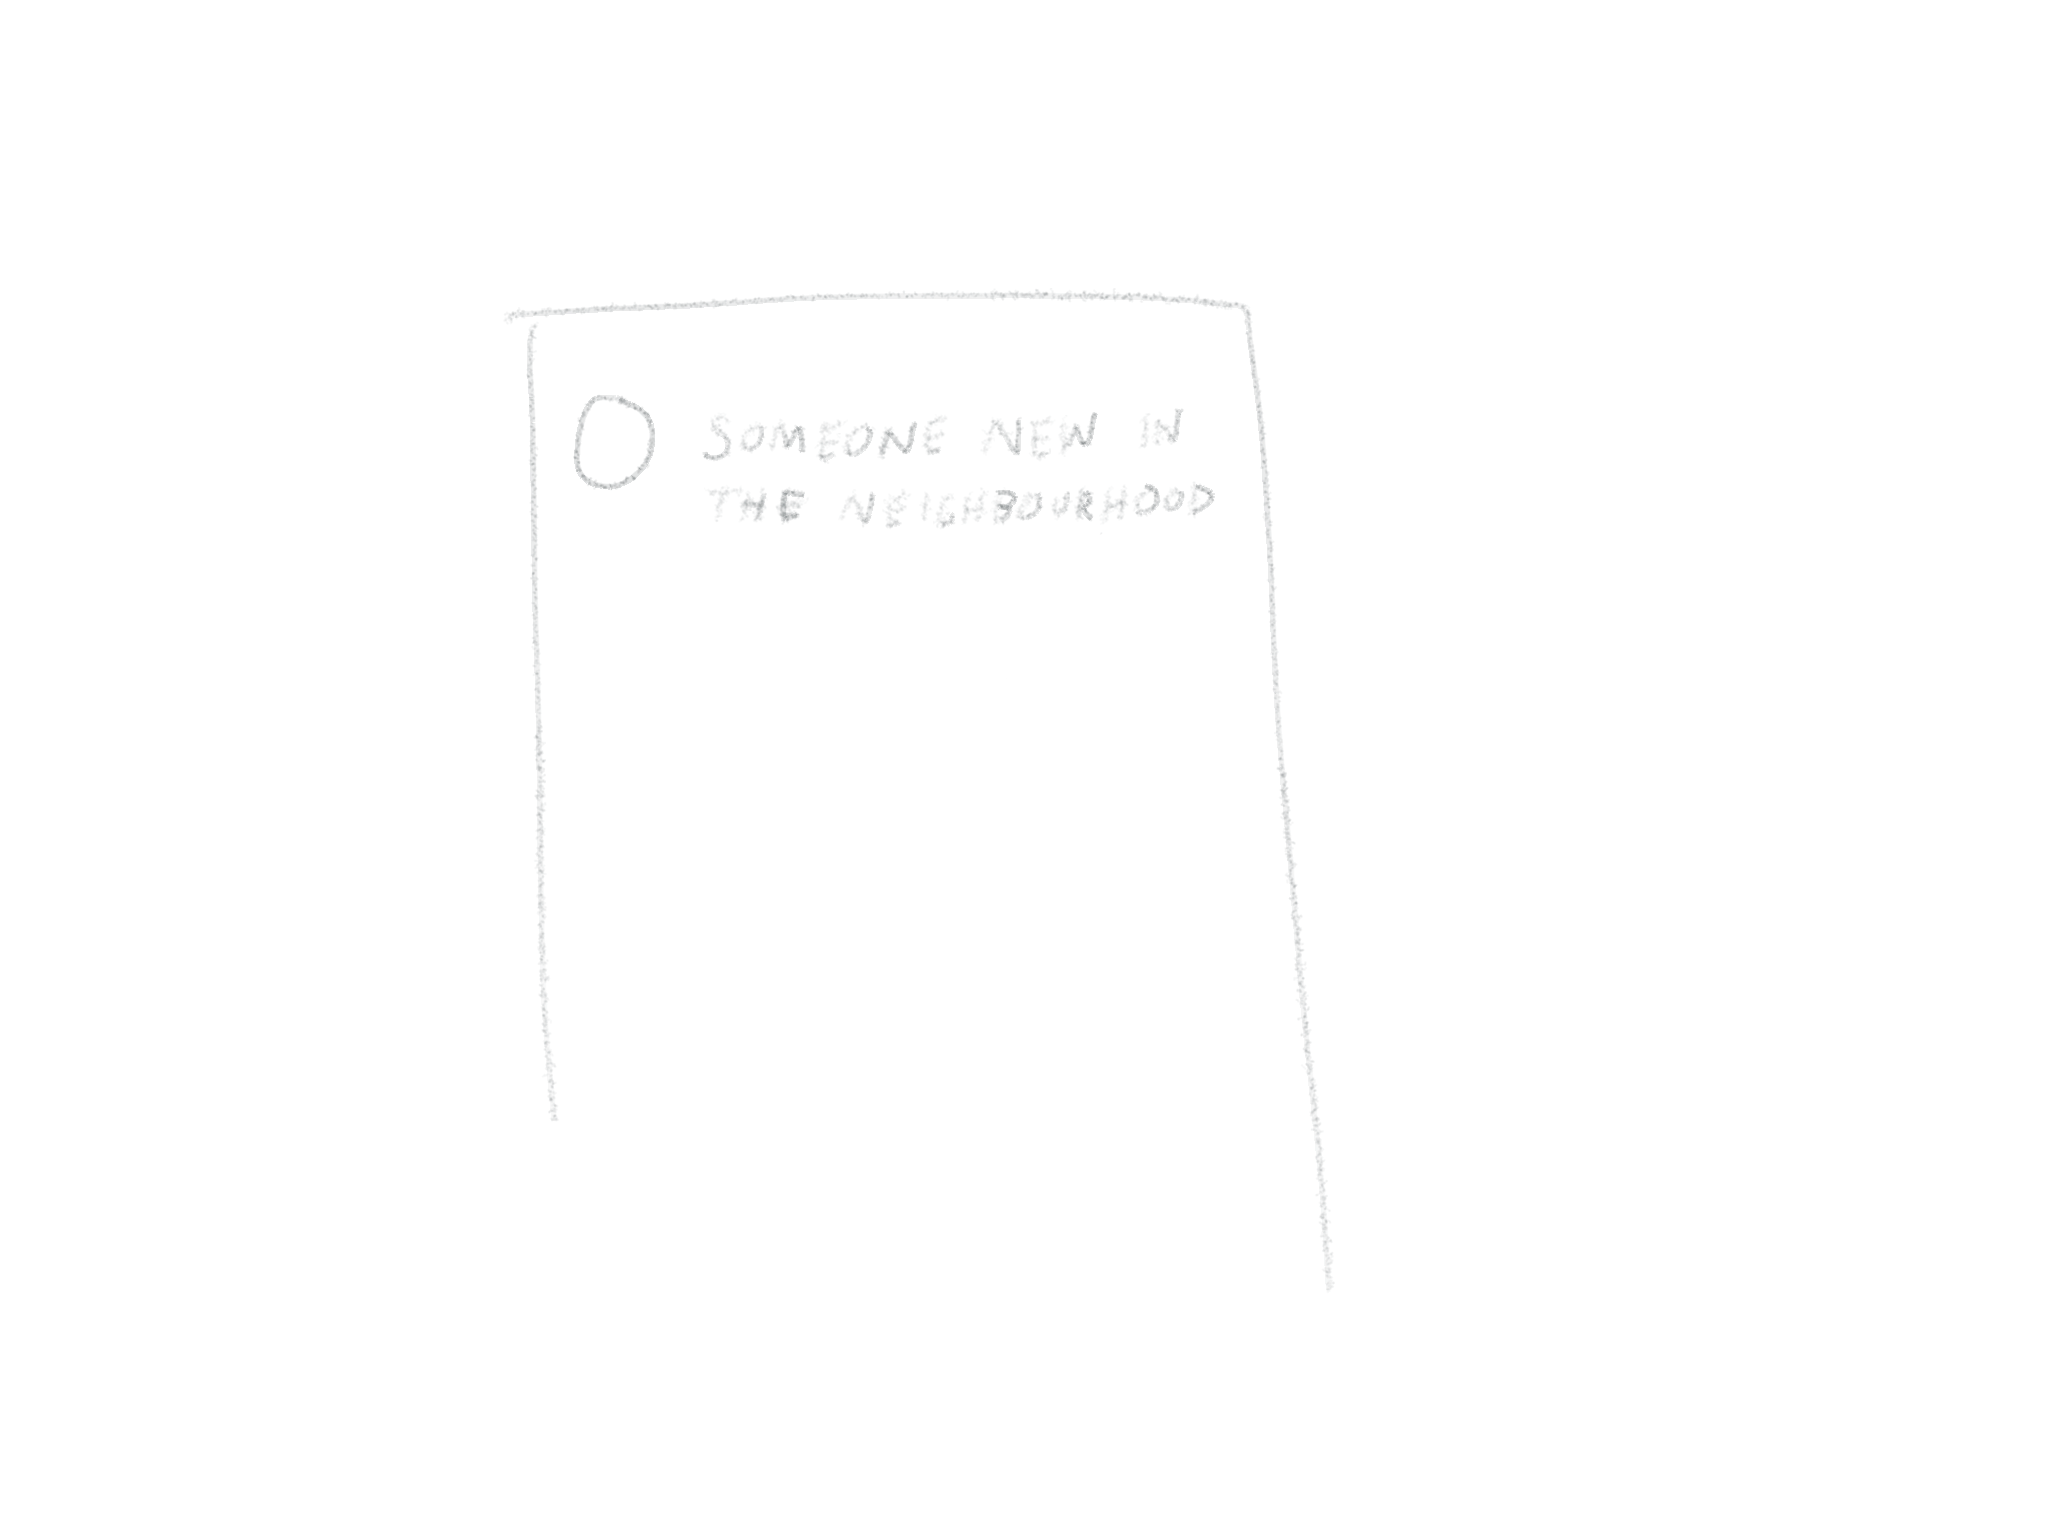 SOMEONE NEW IN
THE NEIGHBOURHOOD